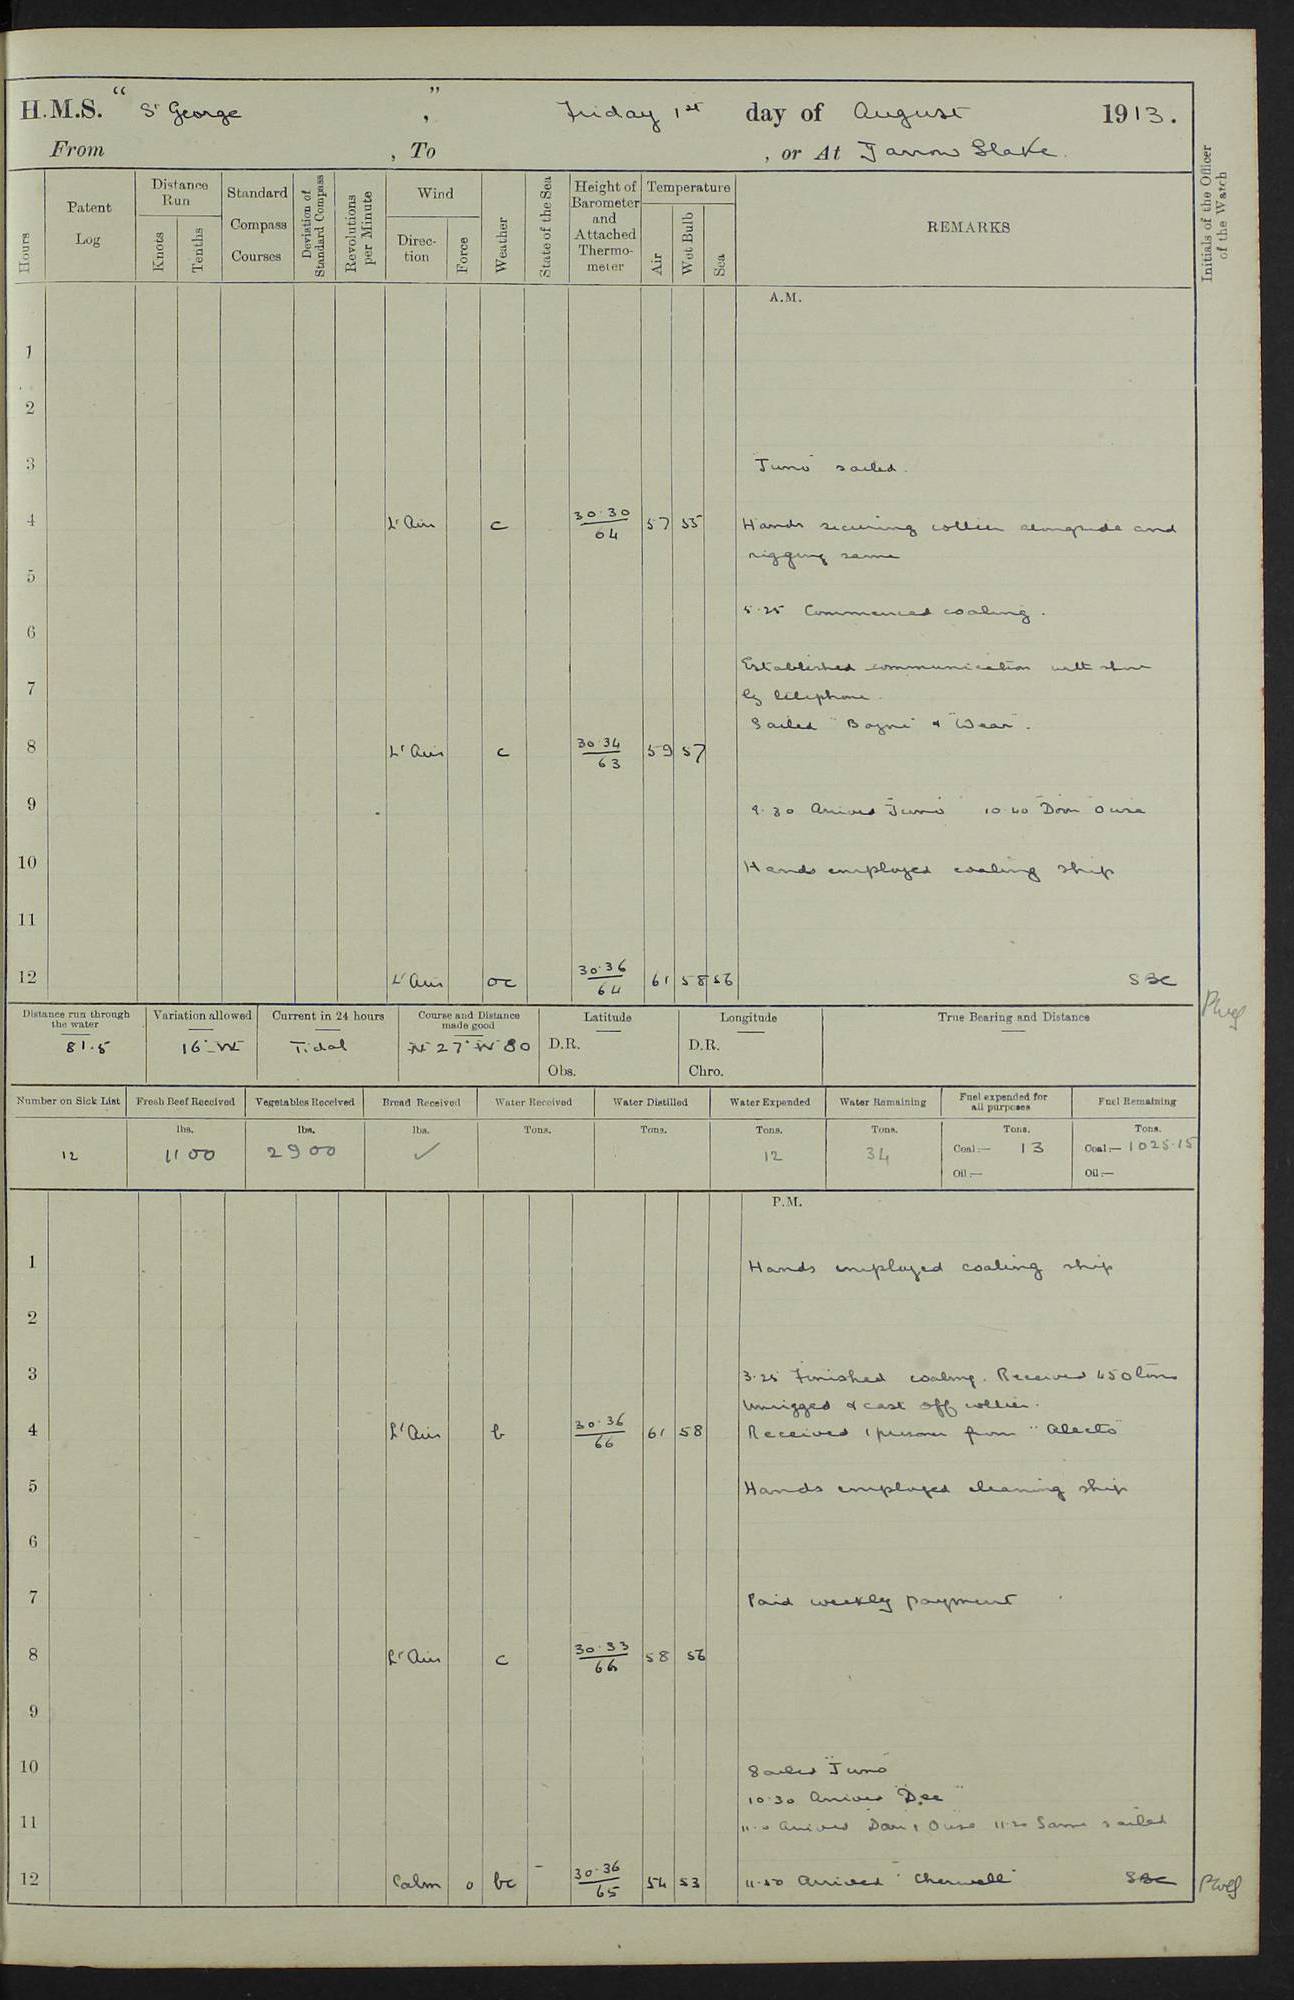 H.M.S. “ St George ”, Friday 1st day of August 1913.
From , To , or At Jarrow Slake.
Hours
Patent Log
Distance Run
Knots
Tenths
Standard Compass Courses
Deviation of Standard Compass
Revolutions per Minute
Wind
Direction
Force
Weather
State of the Sea
Height of Barometer and Attached Thermometer
Temperature
Air
Wet Bulb
Sea
REMARKS
Initials of the Officer of the Watch
A.M.
1
2
3 Juno sailed.
4 Lt Airs c 30.30 64 57 55 Hands securing collier alongside and
rigging same
5
5.25 Commenced coaling.
6
Established communication with shore
7 by telephone.
Sailed "Boyne" & "Wear".
8 Lt Airs c 30.34 63 59 57
9 9.30 Arrived "Juno" 10.40 "Don" "Ouse
10 Hands employed coaling ship
11
12 Lt Airs oc 30.36 64 61 58 56 SBC
Distance run through the water
81.5
Variation allowed
16° W
Current in 24 hours
Tidal
Course and Distance made good
N 27° W 80
Latitude
D.R.
Obs.
Longitude
D.R.
Chro.
True Bearing and Distance
Number on Sick List
12
Fresh Beef Received
lbs.
1100
Vegetables Received
lbs.
2900
Bread Received
lbs.
✓
Water Received
Tons.
Water Distilled
Tons.
Water Expended
Tons.
12
Water Remaining
Tons.
34
Fuel expended for all purposes
Tons.
Coal:— 13
Oil:—
Fuel Remaining
Tons.
Coal:— 1025.15
Oil:—
P.M.
1 Hands employed coaling ship
2
3 3.25 Finished coaling. Received 450 tons
Unrigged & cast off collier.
4 Lt Airs b 30.36 66 61 58 Received 1 prisoner from "Alecto"
5 Hands employed cleaning ship
6
7 Paid weekly payment
8 Lt Airs c 30.33 66 58 56
9
10 Sailed "Juno"
10.30 Arrived "Dee"
11 11.0 Arrived Don, Ouse 11.20 Same sailed
12 Calm 0 bc 30.36 65 54 53 11.50 Arrived "Cherwell" SBC